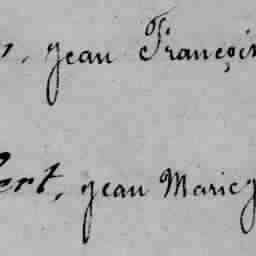 jean François
ert, jean Marie